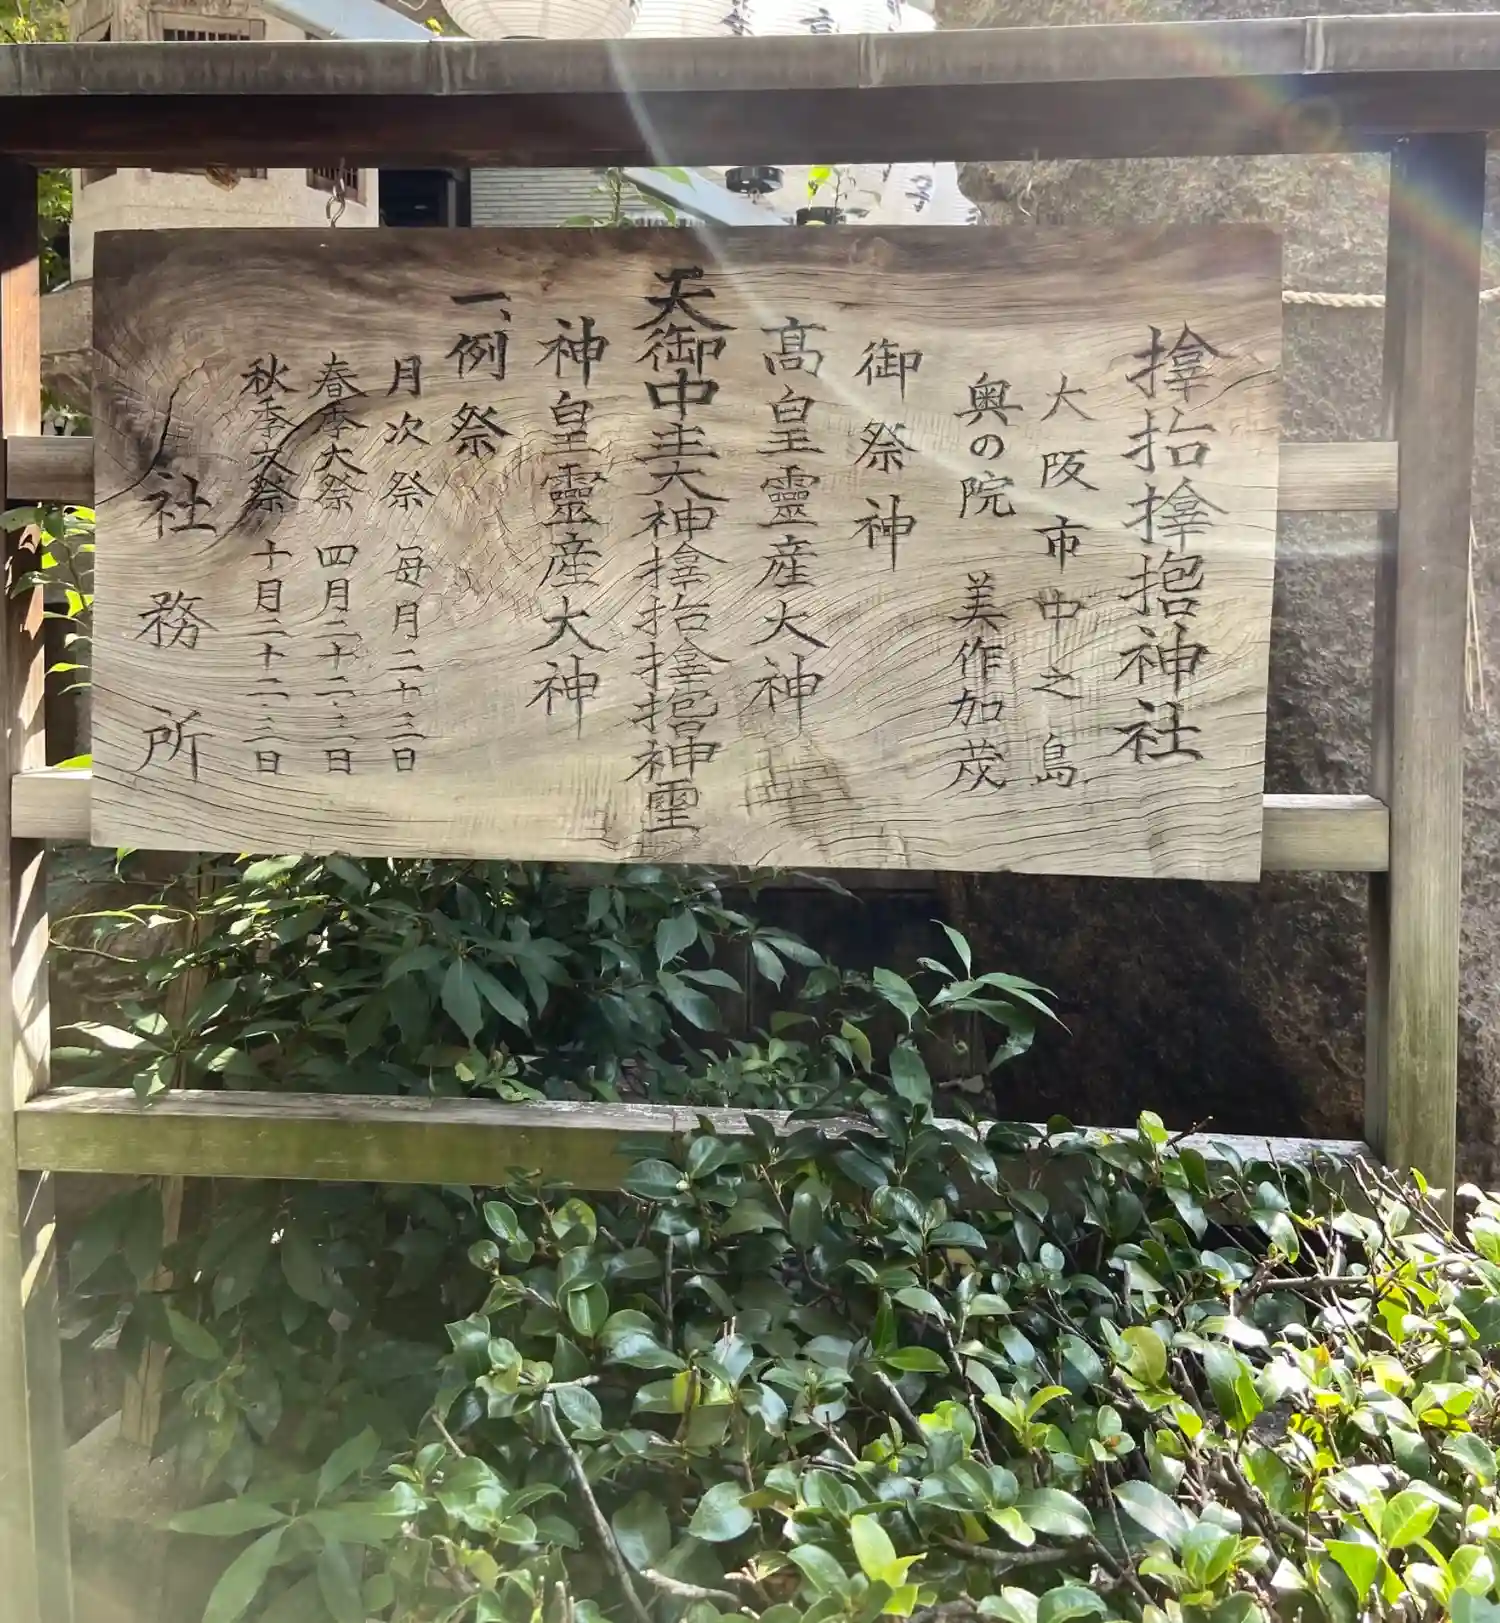 𢫫抬𢫫𪮷神社
大阪市中之島
奥の院 美作加茂
御祭神
髙皇靈産大神
天御中主大神𢫫抬𢫫𪮷神霊
神皇靈産大神
一、例祭
月次祭 毎月二十三日
春季大祭 四月二十二、三日
秋季大祭 十月二十二、三日
社務所